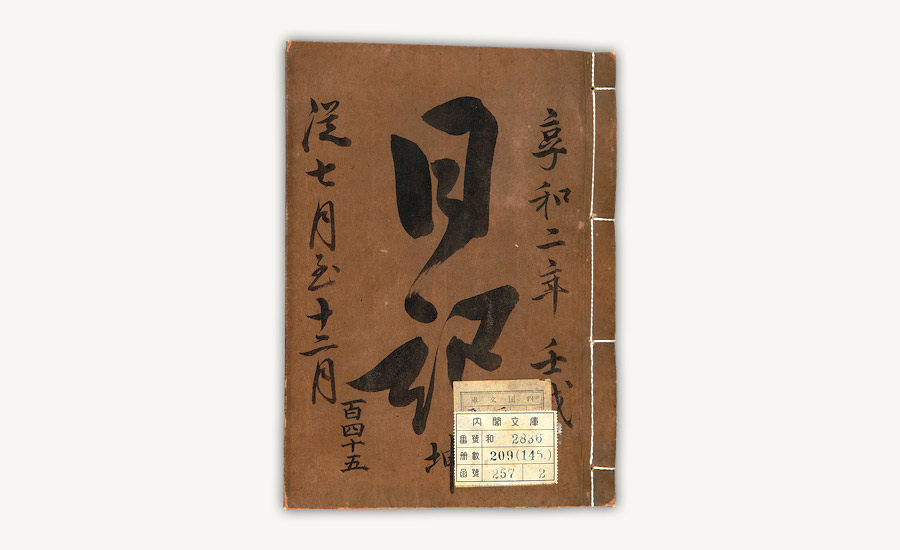 享和二年 壬戌
日記
坤
従七月至十二月
百四十五
內閣文庫
番號 和 2836
册數 209(145)
函號 257 2